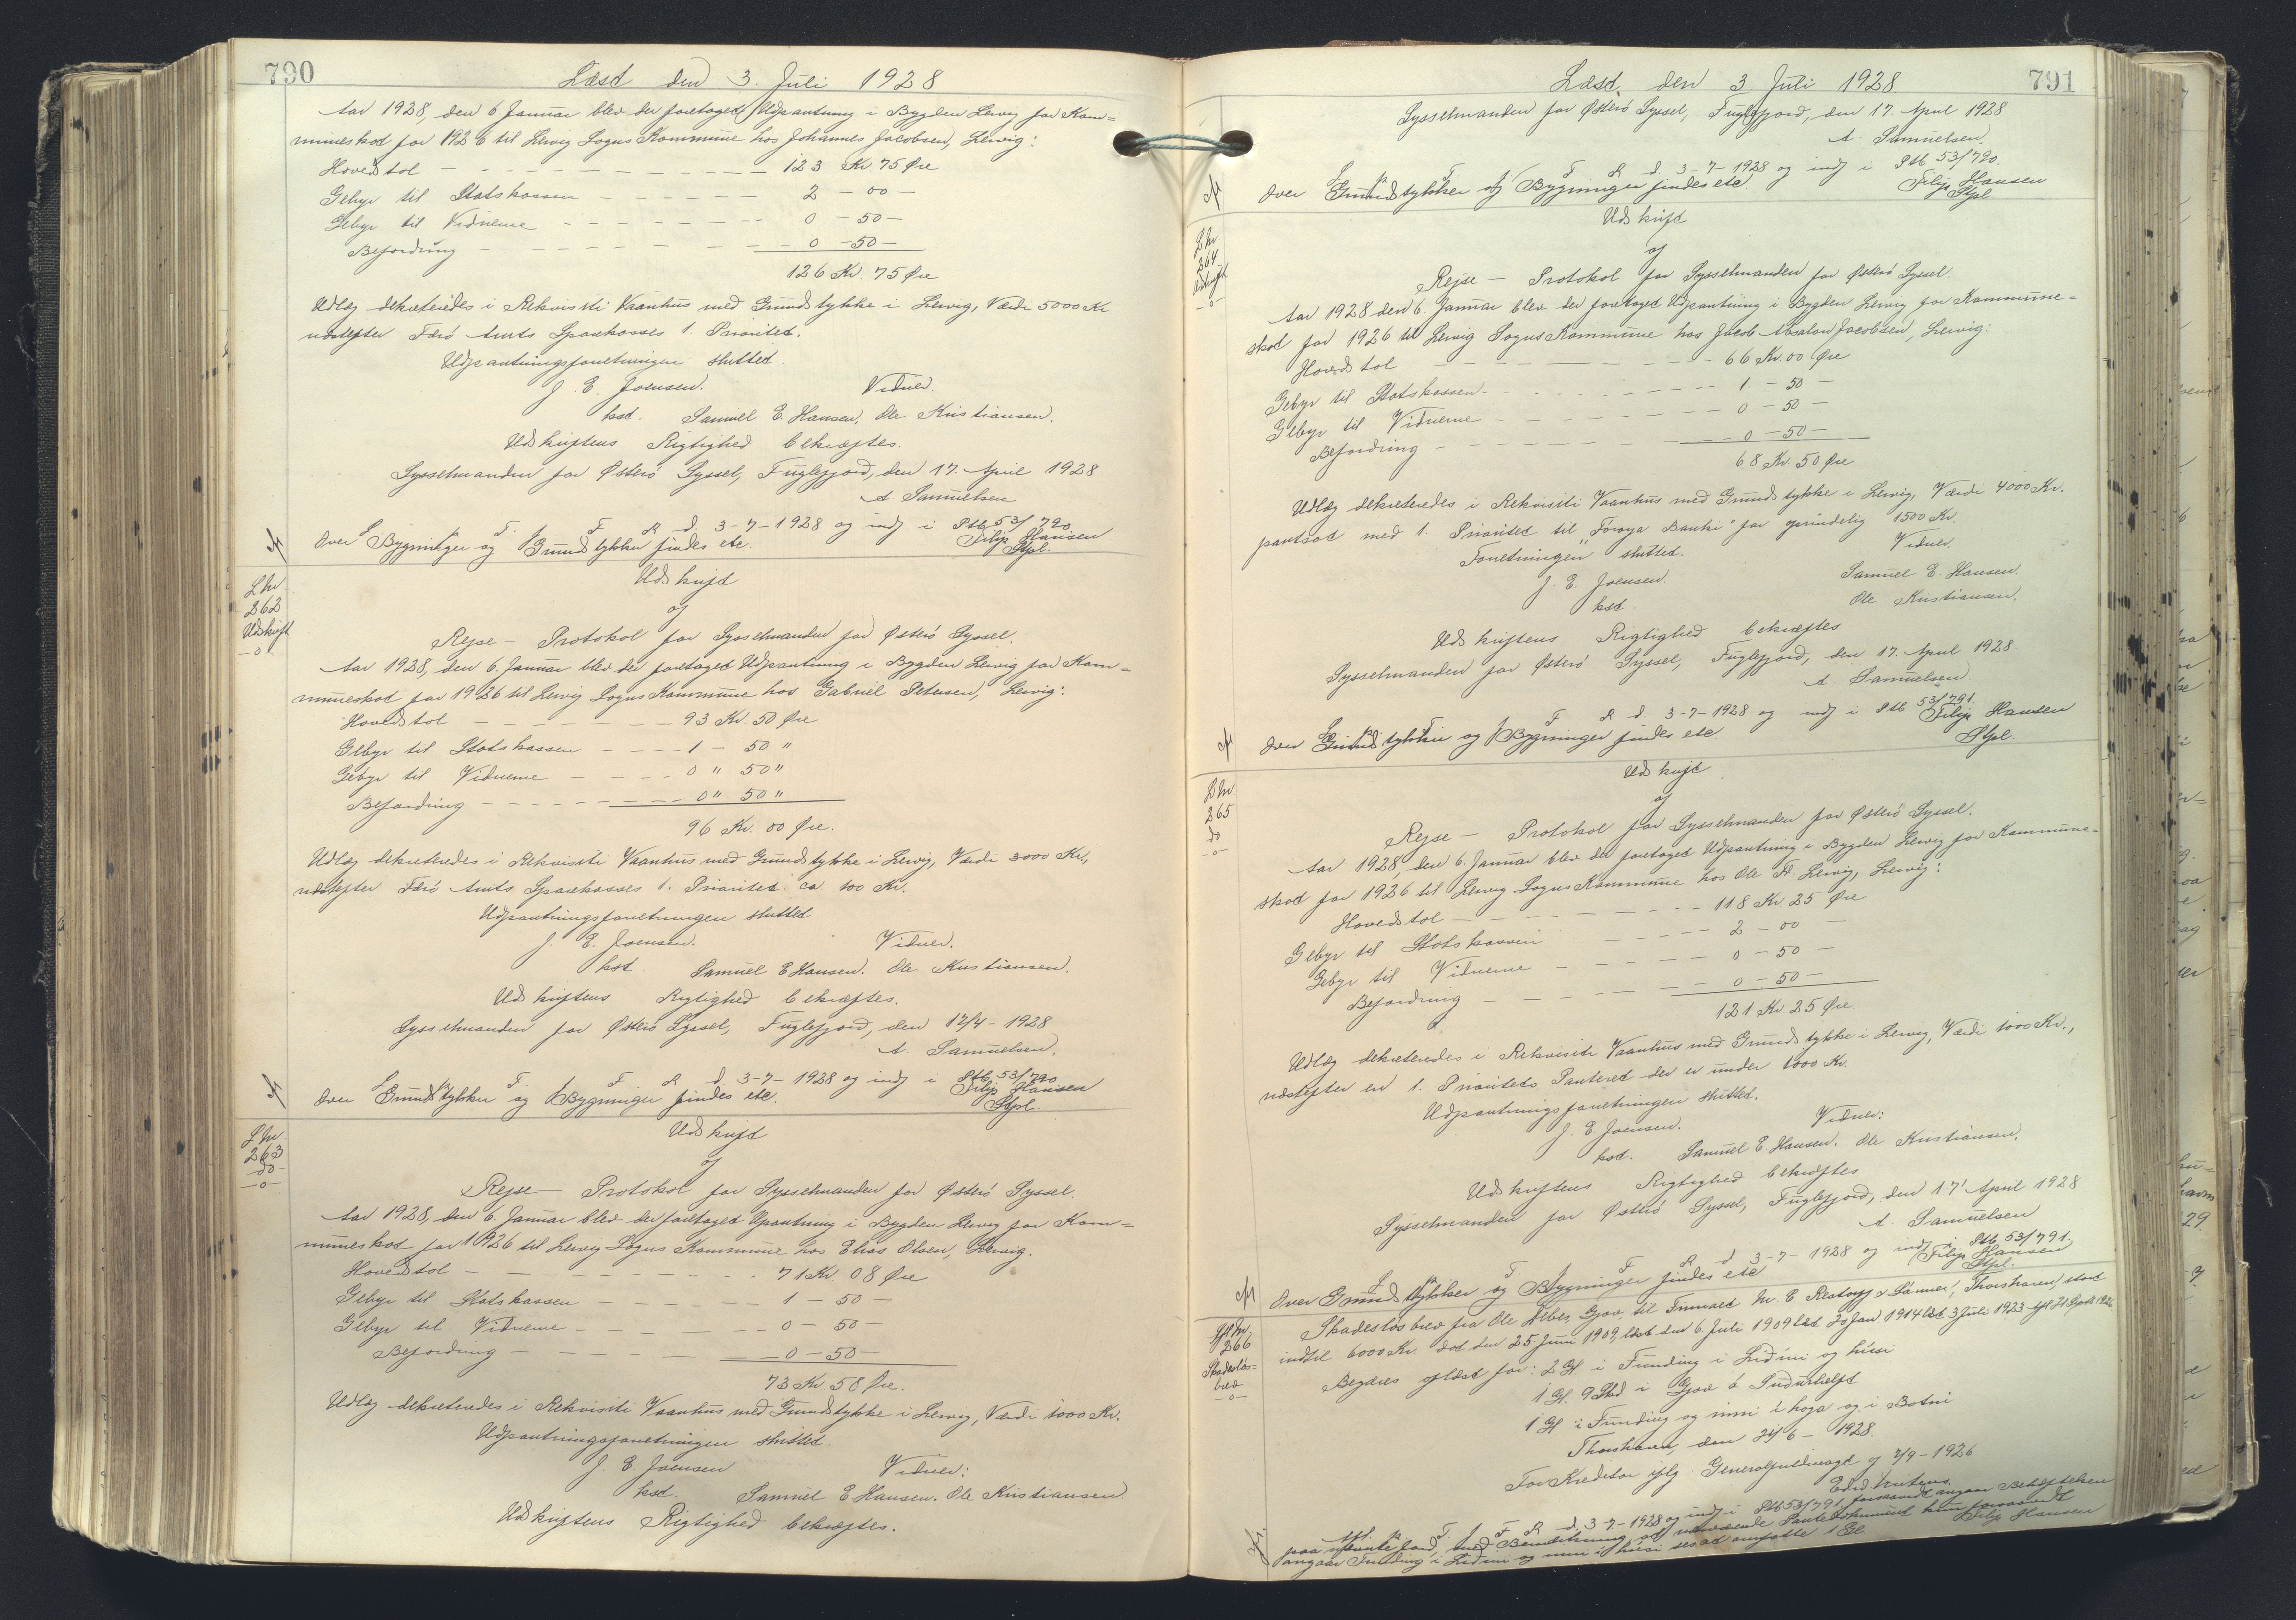 790
Læst den 3. Juli 1928
Aar 1928, den 6 Januar blev der foretaget Udpantning i Bygden Lervig for Kom=
muneskat for 1926 til Lervig Sogns Kommune hos Johannes Jacobsen, Lervig:
Hovedstol — 123 Kr. 75 Øre
Gebyr til Statskassen — 2 — 00 —
Gebyr til Vidnerne — 0 — 50 —
Befordring — 0 — 50 —
126 Kr. 75 Øre
Udlæg dekreteredes i Rekvisiti Vaanhus med Grundstykke i Lervig, Værdi 5000 Kr.
næstefter Færø Amts Sparekasses 1. Prioritet.
Udpantningsforretningen sluttet.
J. E. Joensen. Vidner.
kst. Samuel E. Hansen, Ole Kristiansen.
Udskriftens Rigtighed bekræftes.
Sysselmanden for Østerø Syssel, Fuglefjord, den 17. April 1928
A Samuelsen
L. p. T. f. F. R. d. 3-7-1928 og indf i Ptb 53/790
Over Bygninger og Grundstykker findes etc. Filip Hansen
Stpl.
L Nr
262
Udskrift
—o—
Udskrift
af
Rejse — Protokol for Sysselmanden for Østerø Syssel.
Aar 1928, den 6. Januar blev der foretaget Udpantning i Bygden Lervig for Kom=
muneskat for 1926 til Lervig Sogns Kommune hos Gabriel Petersen, Lervig:
Hovedstol — 93 Kr. 50 Øre
Gebyr til Statskassen — 1 — 50 "
Gebyr til Vidnerne — 0 " 50 "
Befordring — 0 " 50 "
96 Kr. 00 Øre.
Udlæg dekreteredes i Rekvisiti Vaanhus med Grundstykke i Lervig, Værdi 3000 Kr.,
næstefter Færø Amts Sparekasses 1. Prioritet ca 100 Kr.
Udpantningsforretningen sluttet.
J. E. Joensen. Vidner.
kst. Samuel E Hansen. Ole Kristiansen.
Udskriftens Rigtighed bekræftes.
Sysselmanden for Østerø Syssel, Fuglefjord, den 17/4 - 1928
A. Samuelsen.
L. p. T. f. F. R. d. 3-7-1928 og indf i Ptb 53/790
Over Grundstykker og Bygninger findes etc. Filip Hansen
Stpl.
L Nr
263
do
—o—
Udskrift
af
Rejse — Protokol for Sysselmanden for Østerø Syssel.
Aar 1928, den 6. Januar blev der foretaget Upantning i Bygden Lervig for Kom=
muneskat for 1926 til Lervig Sogns Kommune hos Elias Olsen, Lervig.
Hovedstol — 71 Kr 08 Øre
Gebyr til Statskassen — 1 — 50 —
Gebyr til Vidnerne — 0 — 50 —
Befordring — 0 — 50 —
73 Kr 58 Øre.
Udlæg dekreteredes i Rekvisiti Vaanhus med Grundstykke i Lervig, Værdi 1000 Kr.
Udpantningsforretningen sluttet.
J. E. Joensen Vidner:
kst. Samuel E Hansen. Ole Kristiansen.
Udskriftens Rigtighed bekræftes.
Læst den 3 Juli 1928
791
Sysselmanden for Østerø Syssel, Fuglefjord, den 17. April 1928
A. Samuelsen.
L. p. T. f. F. R. d. 3-7-1928 og indf i Ptb 53/790.
Over Grundstykker og Bygninger findes etc Filip Hansen
Stpl.
L Nr
264
Udskrift
—o—
Udskrift
af
Rejse — Protokol for Sysselmanden for Østerø Syssel.
Aar 1928 den 6. Januar blev der foretaget Udpantning i Bygden Lervig for Kommune=
skat for 1926 til Lervig Sogns Kommune hos Jacob Absalon Jacobsen, Lervig:
Hovedstol — 66 Kr. 00 Øre
Gebyr til Statskassen — 1 — 50 —
Gebyr til Vidnerne — 0 — 50 —
Befordring — 0 — 50 —
68 Kr. 50 Øre
Udlæg dekreteredes i Rekvisiti Vaanhus med Grundstykke i Lervig, Værdi 4000 Kr.
pantsat med 1. Prioritet til "Føroya Banki" for oprindelig 1500 Kr.
Forretningen sluttet. Vidner.
J. E. Joensen. Samuel E. Hansen.
kst. Ole Kristiansen.
Udskriftens Rigtighed bekræftes
Sysselmanden for Østerø Syssel, Fuglefjord, den 17. April 1928.
A. Samuelsen.
L. p. T. f. F. R d 3-7-1928 og indf i Ptb 53/791.
Over Grundstykker og Bygninger findes etc. Filip Hansen
Stpl.
L Nr
265
do
—o—
Udskrift
af
Rejse — Protokol for Sysselmanden for Østerø Syssel.
Aar 1928, den 6. Januar blev der foretaget Udpantning i Bygden Lervig for Kommune=
skat for 1926 til Lervig Sogns Kommune hos Ole Fr. Lervig, Lervig:
Hovedstol — 118 Kr 25 Øre
Gebyr til Statskassen — 2 — 00 —
Gebyr til Vidnerne — 0 — 50 —
Befordring — 0 — 50 —
121 Kr. 25 Øre.
Udlæg dekreteredes i Rekvisiti Vaanhus med Grundstykke i Lervig, Værdi 1000 Kr.,
næstefter en 1. Prioritets Panteret der er under 1000 Kr.
Udpantningsforretningen sluttet.
J. E Joensen. Vidner:
kst. Samuel E Hansen. Ole Kristiansen.
Udskriftens Rigtighed bekræftes
Sysselmanden for Østerø Syssel, Fuglefjord, den 17' April 1928
A. Samuelsen
L. p. T. f. F. R. d 3-7-1928 og indf i Ptb 53/791.
Over Grundstykker og Bygninger findes etc. Filip Hansen
Stpl.
266
Skadesløs=
brev
—o—
Skadesløsbrev fra Ole Olsen, Gjov, til Firmaet M. C Restorff & Sønner, Thorshavn, stort
indtil 6000 Kr. dat den 25. Juni 1909, læst den 6. Juli 1909 læst 20 Jan 1914 læst 3 Juli 1923
Begæres aflæst for: 2 Gl. i Funding i Lidini og húsi
1 Gl. 9 Skd i Gjov á Sudurhelft
1 Gl i Funding og inni í haga og i Botni
Thorshavn, den 24/6 - 1928.
For Kreditor iflg. Generalfuldmagt af 2/9 - 1926
L. p. T. f. F. R. d. 3-7-1928 og indf i Ptb 53/791, forsaavidt angaar Behæftelsen
paa nævnte Jord, med Bemærkning at nærværende Pantedokument kun forsaavidt
angaar Funding i Lidini og inni í húsi ses at omfatte 1 Gl. Filip Hansen